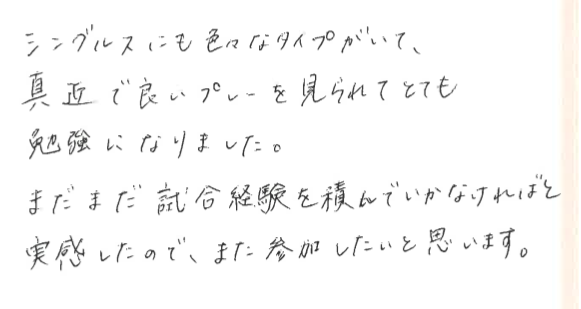 シングルスにも色々なタイプがいて、
真近で良いプレーを見られてとても
勉強になりました。
まだまだ試合経験を積んでいかなければと
実感したので、また参加したいと思います。